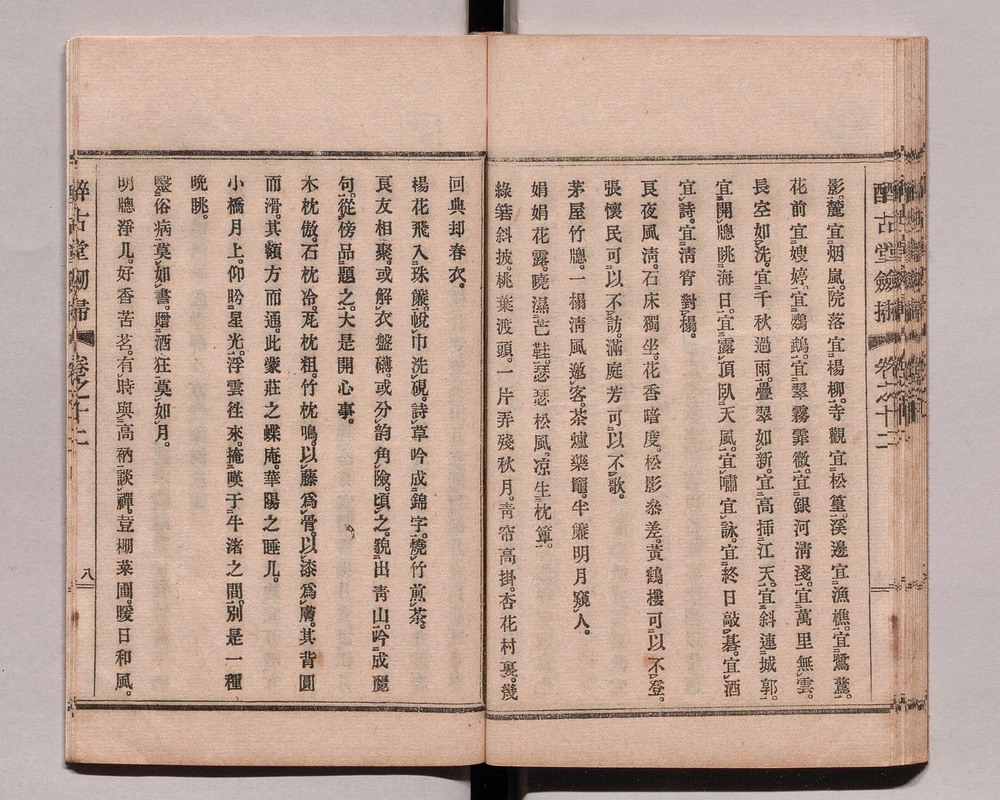 影鷺宜烟嵐。院落宜楊柳。寺觀宜松篁。溪邊宜漁樵。宜鷺鷥。
花前宜嫂婷。宜鸚鵡。宜翠霧霏微。宜銀河清淺。宜萬里無雲。
長空如洗。宜千秋過雨。疊翠如新。宜高挿江天。宜斜連城郭。
宜開牕眺海日。宜露頂臥天風。宜嘯宜詠。宜終日敲碁。宜酒
宜詩。宜淸宵對榻。
良夜風淸。石床獨坐。花香暗度。松影參差。黃鶴樓可以不登。
張懷民可以不訪。滿庭芳可以不歌。
茅屋竹牕。一榻淸風邀客。茶爐藥竈。半簾明月窺人。
娟娟花露。曉濕芒鞋。瑟瑟松風。凉生枕簟。
綠簑斜披。桃葉渡頭。一片弄殘秋月。靑帘高掛。杏花村裏。幾
回典却春衣。
楊花飛入珠簾。帨巾洗硯。詩草吟成錦字。燒竹煎茶。
良友相聚。或解衣盤礴。或分韵角險。頃之貌出靑山。吟成麗
句。從傍品題之。大是開心事。
木枕傲。石枕冷。瓦枕粗。竹枕鳴。以藤爲骨。以漆爲膚。其背圓
而滑。其額方而通。此蒙莊之蝶庵。華陽之睡几。
小橋月上。仰盻星光。浮雲徃來。掩暎于牛渚之間。別是一種
晩眺。
醫俗病莫如書。贈酒狂莫如月。
明牕淨几。好香苦茗。有時與高衲談禪。荳棚菜圃。暖日和風。
醉古堂劒掃
卷之十二
八